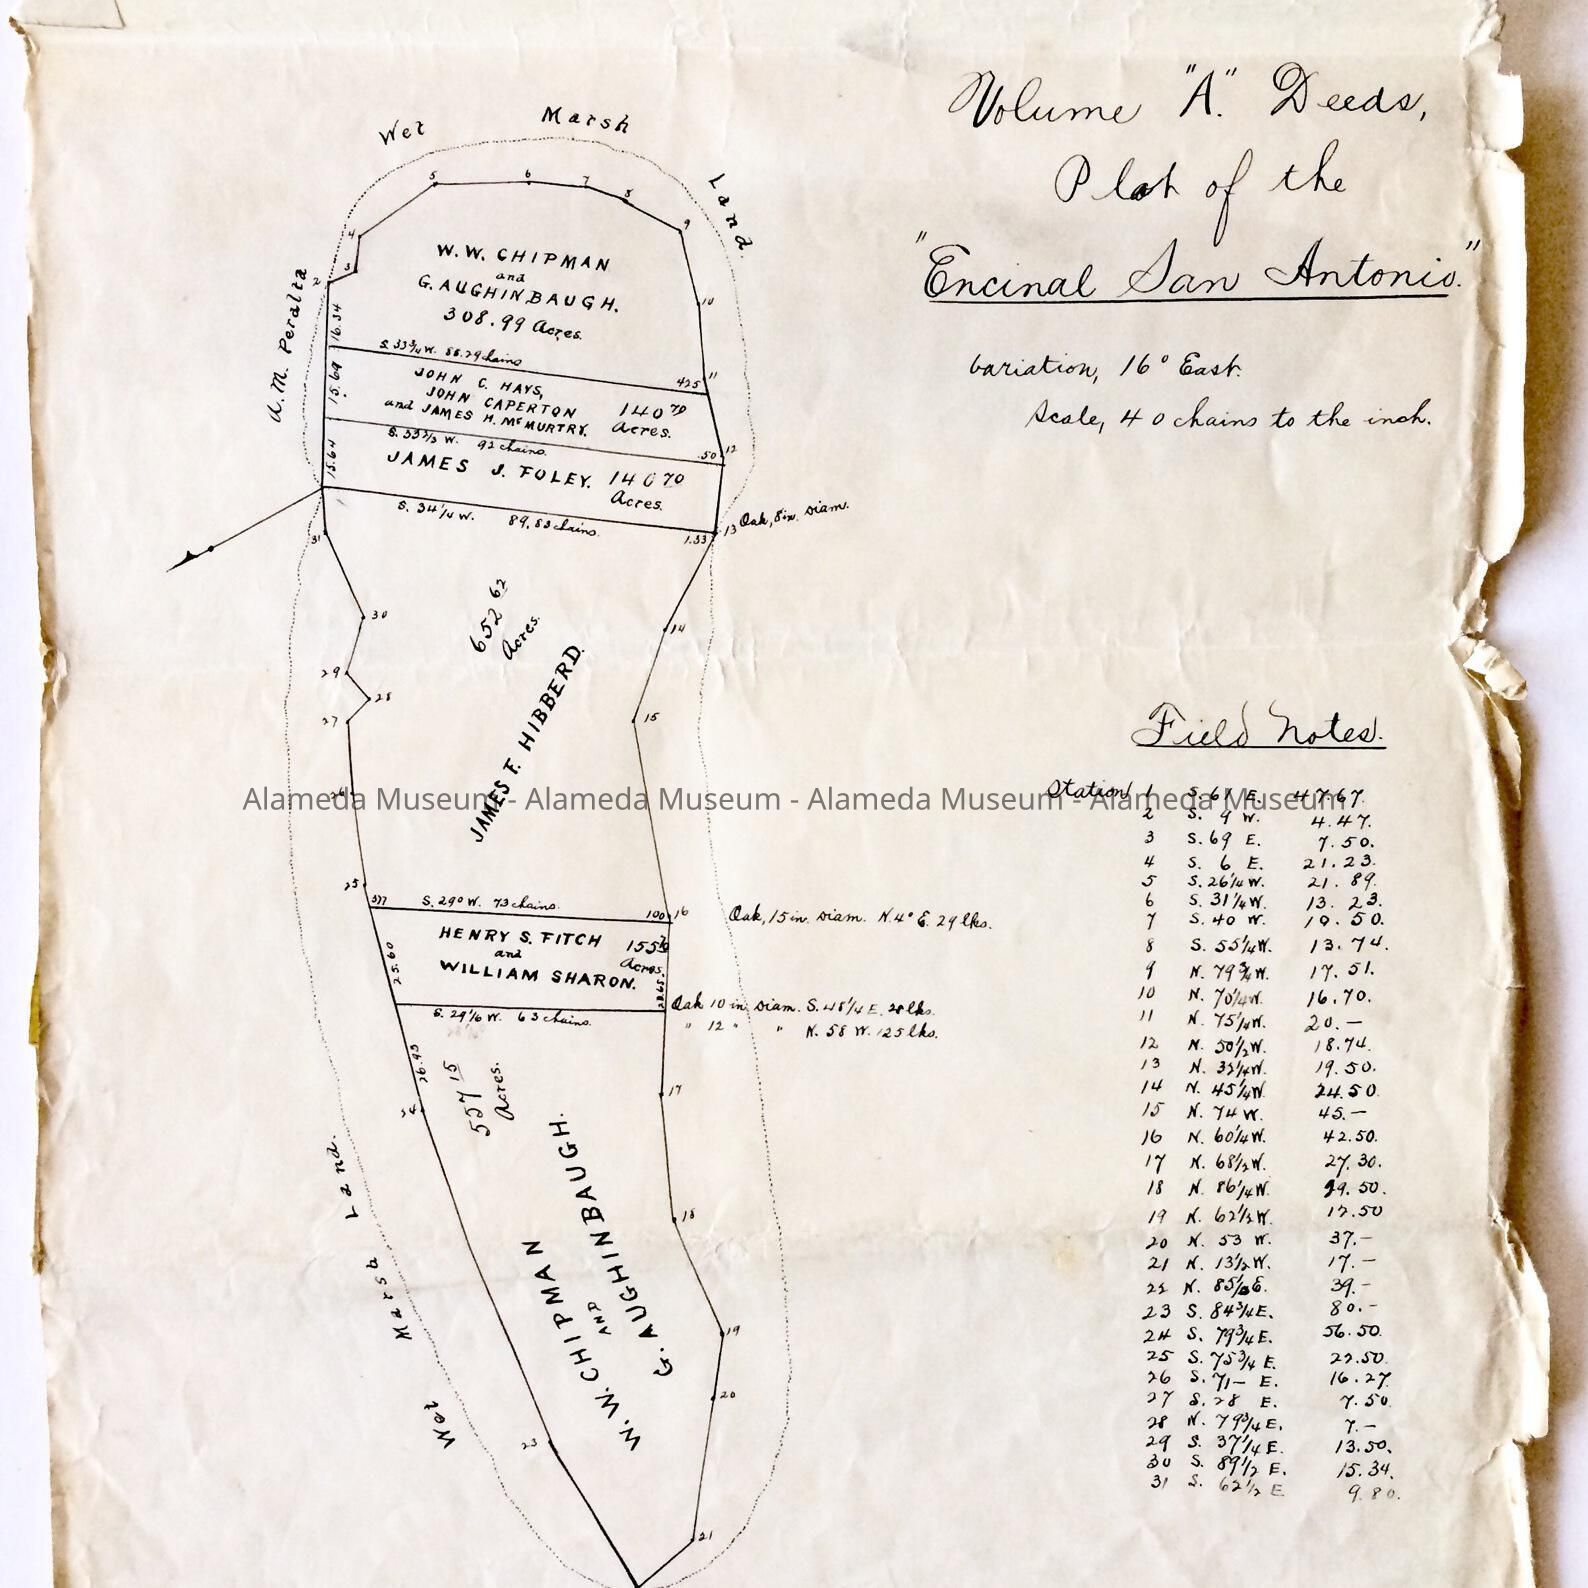 Volume "A". Deeds,
Plat of the
"Encinal San Antonio."
Variation, 16° East.
Scale, 40 chains to the inch.
Wet Marsh Land.
A.M. Peralta
W.W. CHIPMAN
and
G. AUGHINBAUGH.
308.99 Acres.
S. 33¾ W. 88.29 chains
JOHN C. HAYS,
JOHN CAPERTON
and JAMES H. McMURTRY.
140 70
Acres.
S. 33⅔ W. 92 chains.
JAMES J. FOLEY. 140 70
Acres.
S. 34¼ W. 89,83 chains.
2
3
4
5
6
7
8
9
10
11
12
13
16.34
15.69
15.64
425
.50
1.33
Oak, 8 in. Diam.
31
30
29
28
27
26
25
14
15
652 62
Acres.
JAMES F. HIBBERD.
Alameda Museum - Alameda Museum - Alameda Museum - Alameda Museum
577
S. 29° W. 73 chains.
100
16
Oak, 15 in. Diam. N. 4° E. 29 lks.
HENRY S. FITCH
and
WILLIAM SHARON.
Acres.
25.60
S. 29⅙ W. 63 chains.
Oak 10 in. Diam. S. 48¼ E. 28 lks.
" 12 " " N. 58 W. 125 lks.
26.93
24
557 15
Acres.
17
18
19
20
21
23
W.W. CHIPMAN
AND
G. AUGHINBAUGH.
Wet Marsh Land.
Field Notes.
Station 1 S. 61 E. 47.67.
2 S. 9 W. 4.47.
3 S. 69 E. 7.50.
4 S. 6 E. 21.23.
5 S. 26¼ W. 21.89.
6 S. 31¼ W. 13.23.
7 S. 40 W. 10.50.
8 S. 55¼ W. 13.74.
9 N. 79¾ W. 17.51.
10 N. 70¼ W. 16.70.
11 N. 75¼ W. 20.—
12 N. 50½ W. 18.74.
13 N. 32¼ W. 19.50.
14 N. 45¼ W. 24.50.
15 N. 74 W. 45.—
16 N. 60¼ W. 42.50.
17 N. 68½ W. 27.30.
18 N. 86¼ W. 29.50.
19 N. 62½ W. 17.50
20 N. 53 W. 37.—
21 N. 13½ W. 17.—
22 N. E. 39.—
23 S. 84¾ E. 80.—
24 S. 79¾ E. 56.50.
25 S. 75¾ E. 22.50.
26 S. 71— E. 16.27.
27 S. 28 E. 7.50.
28 N. 79¾ E. 7.—
29 S. 37¼ E. 13.50.
30 S. 89½ E. 15.34.
31 S. 62½ E 9.80.